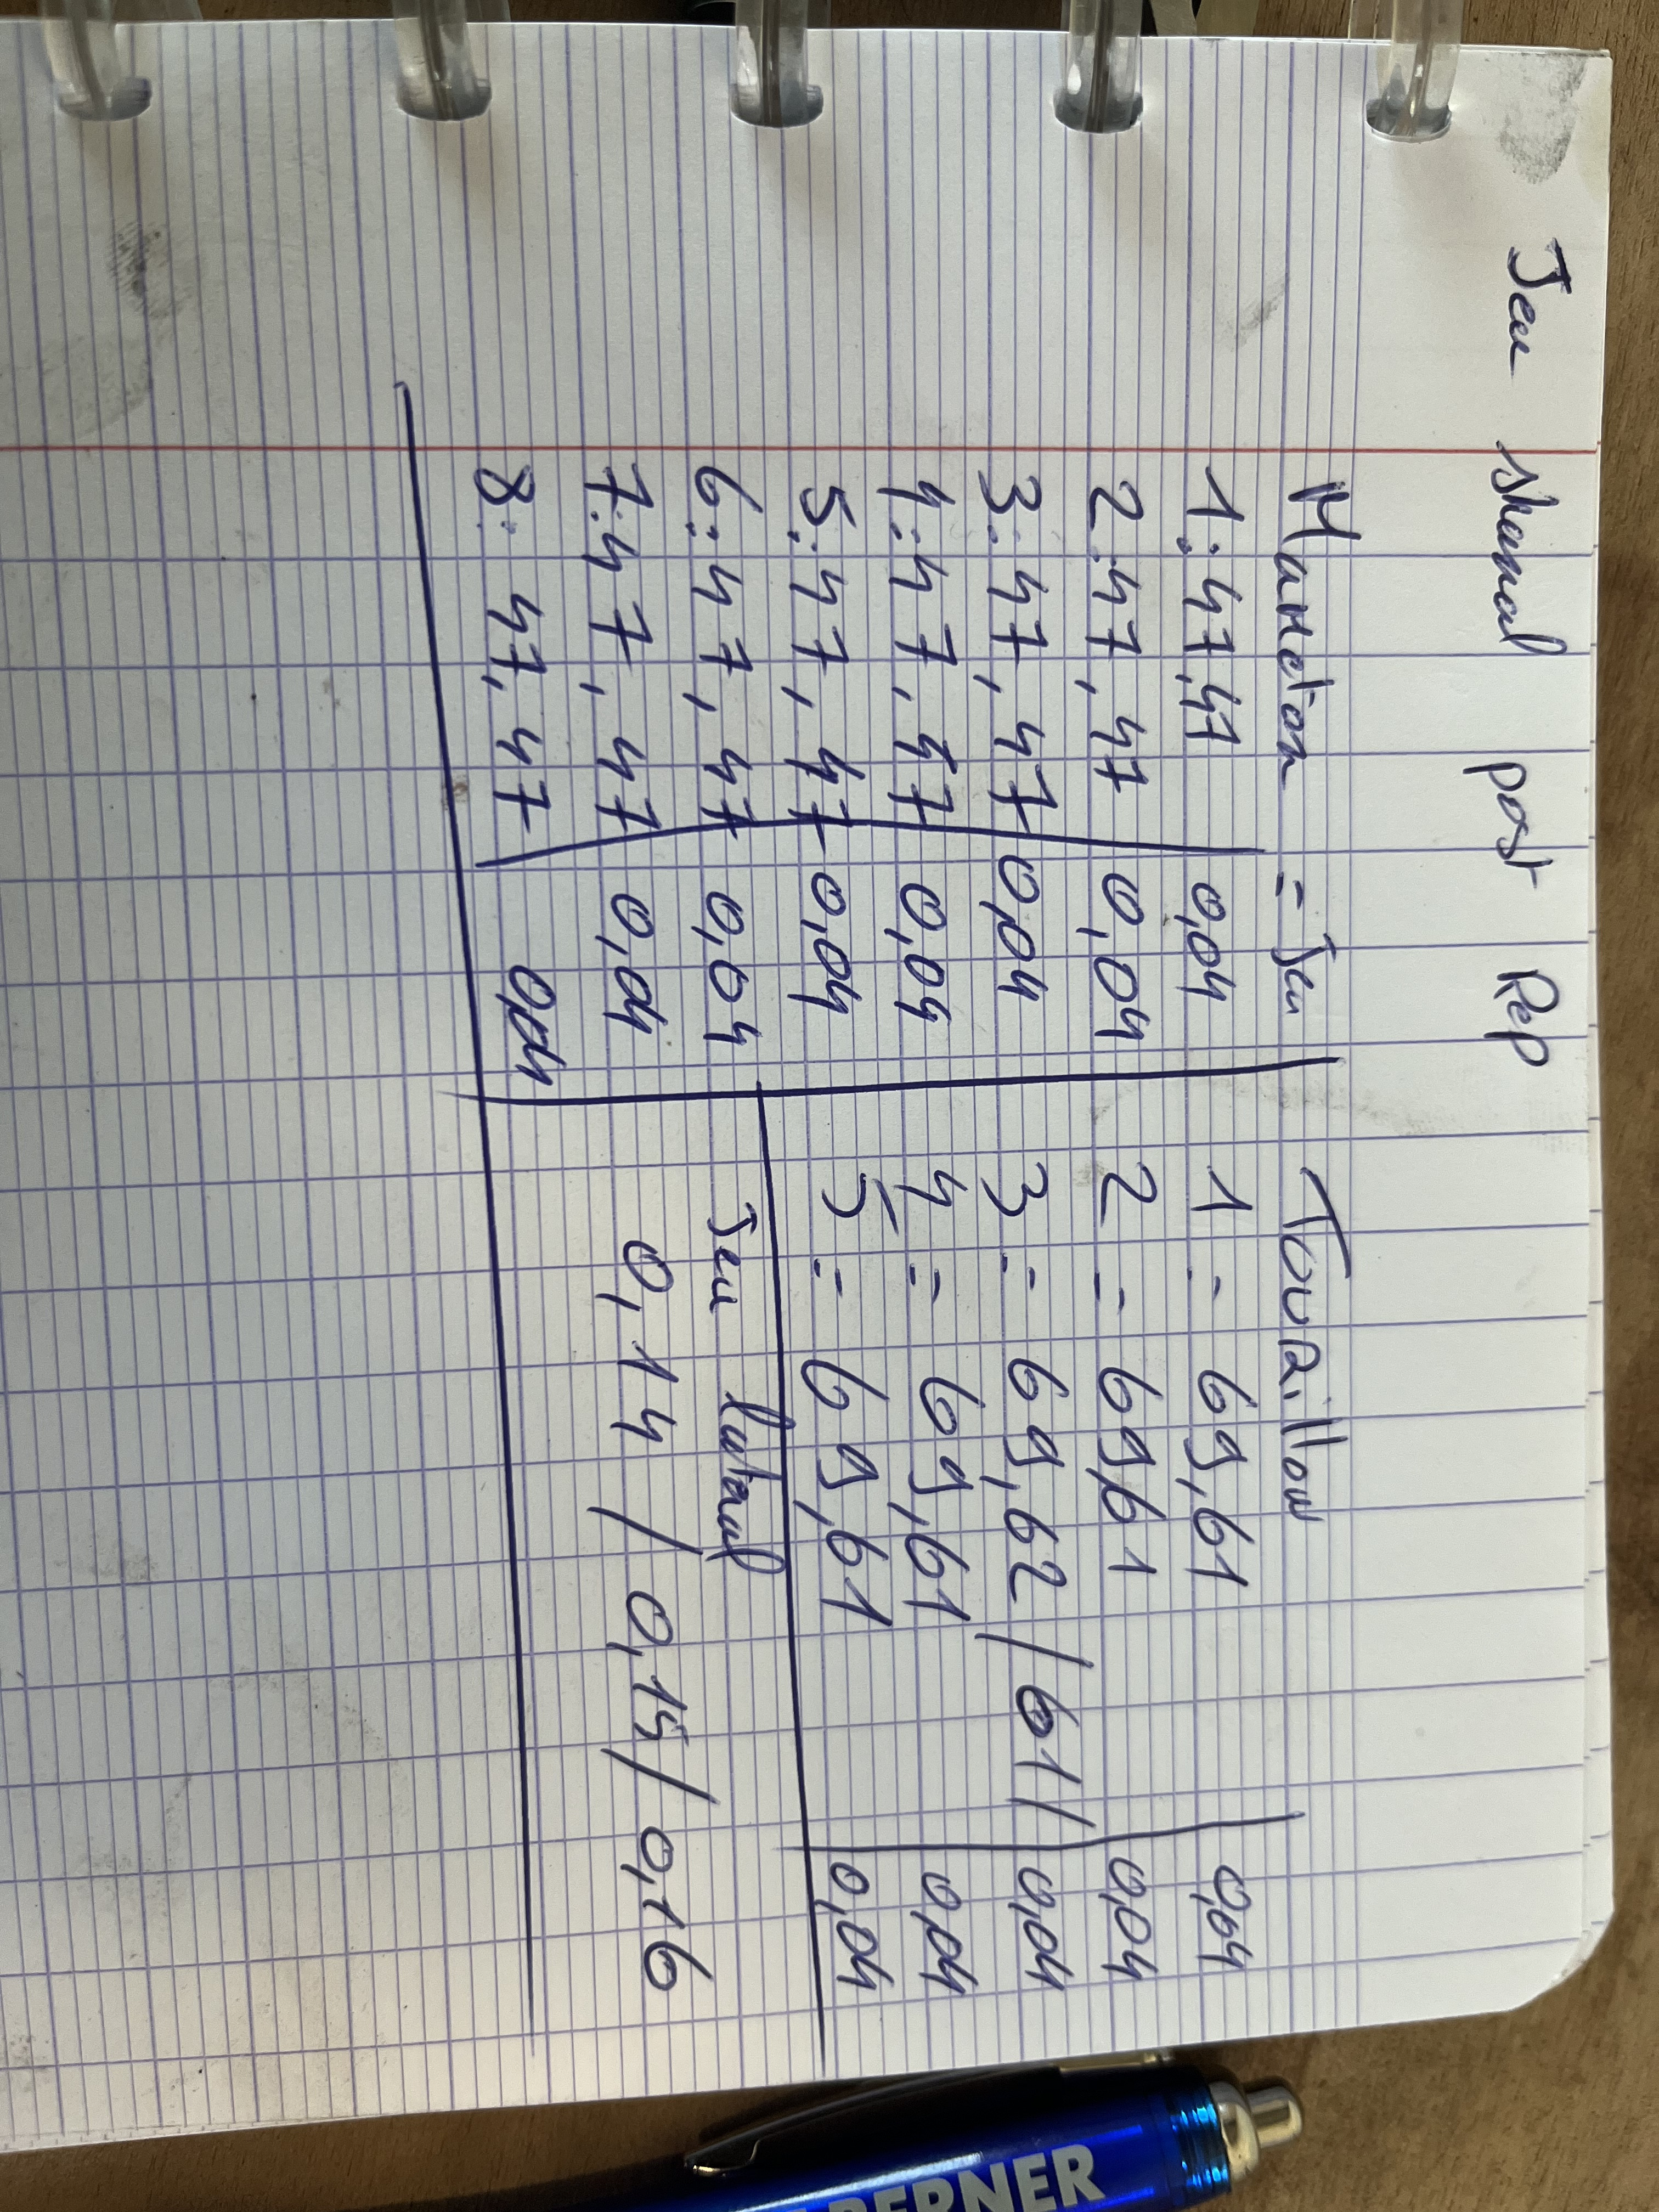 Jeu standard post Rep
Maneton = Jeu
1: 47,47 0,04
2: 47,47 0,04
3: 47,47 0,04
4: 47,47 0,04
5: 47,47 0,04
6: 47,47 0,04
7: 47,47 0,04
8: 47,47 0,04
Tourillon
1 = 69,61 0,04
2 = 69,61 0,04
3 = 69,62 /61/ 0,04
4 = 69,61 0,04
5 = 69,61 0,04
Jeu latéral
0,14 / 0,15 / 0,16
BERNER